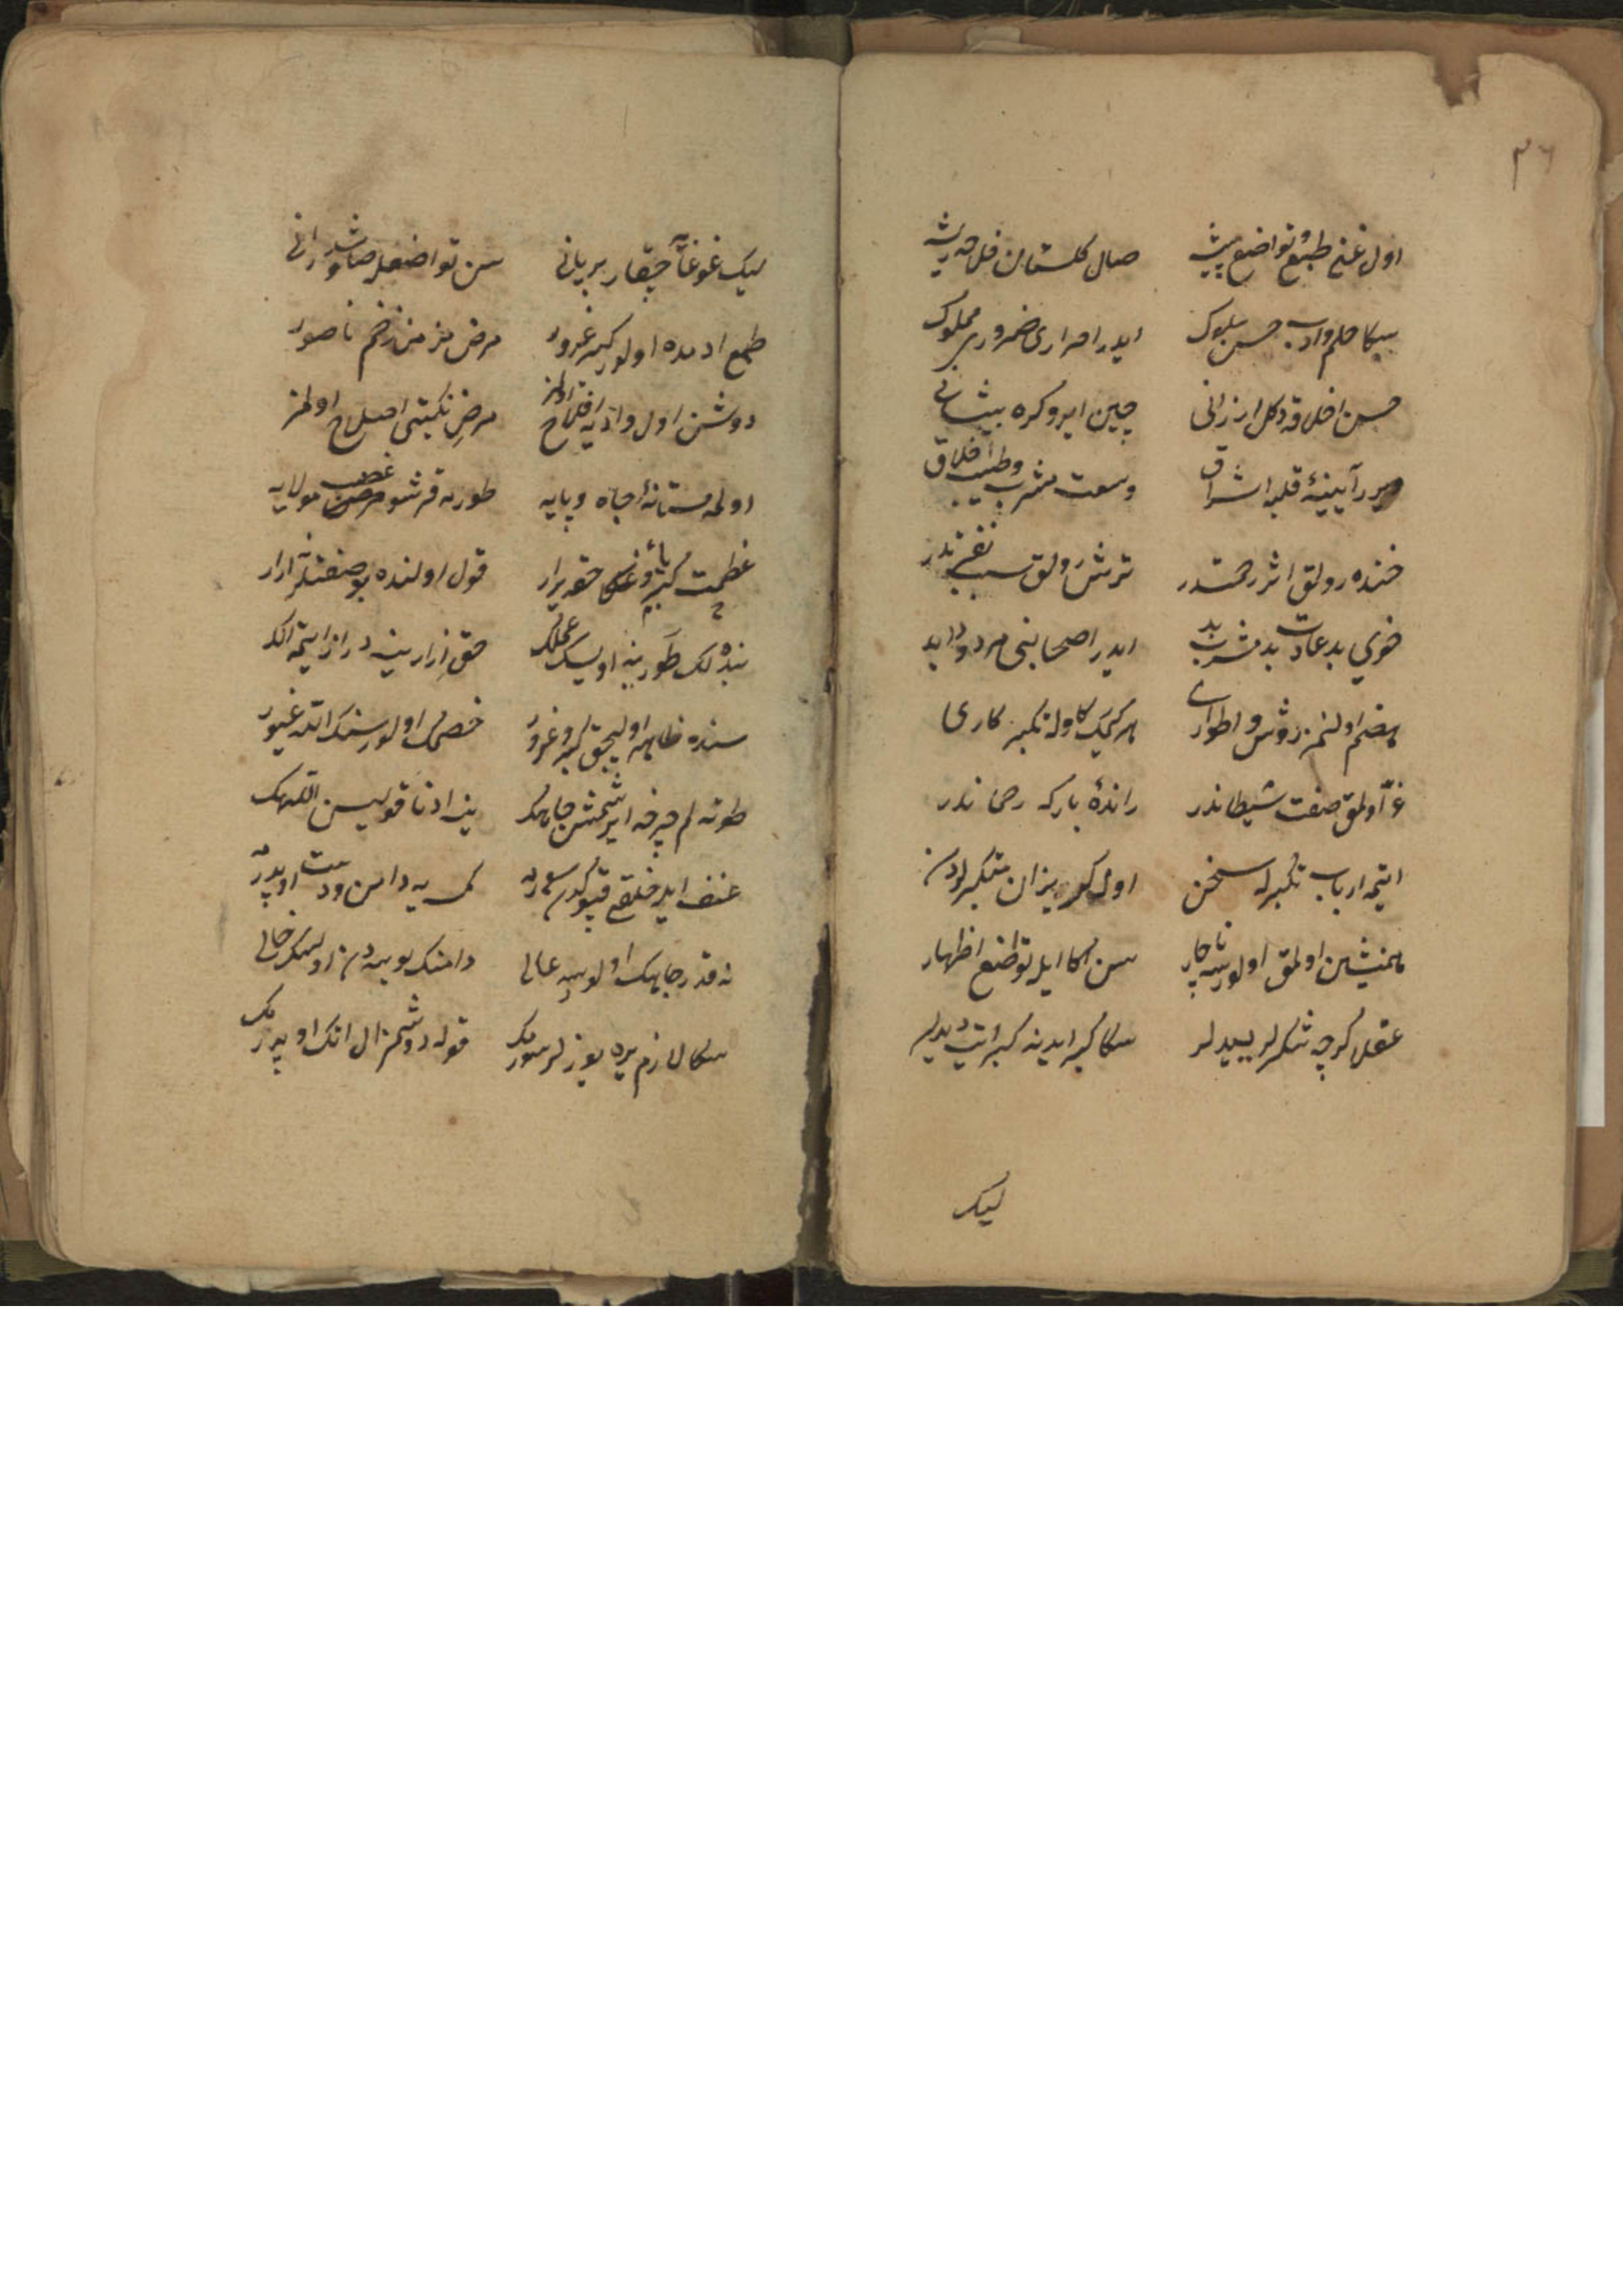 ٣٦
اول غنی طبع و تواضع پیشه صال گلستان فلاحه ریشه
سكا حلم و ادب حسن سلوك ایدر احراری ضروری مملوك
حسن اخلاقه دكل ارزانی چین ابرو گره پیشانی
ویرر آیینهٔ قلبه اشراق وسعت مشرب و طیب اخلاق
خنده رولق اثر رحمتدر ترش رولق سبب نفرتدر
خوی بد عادت بد مشرب بد ایدر اصحابنی مردود ابد
هضم اولنمز روش و اطواری هر كیمك كاوله تكبر كاری
غرّا اولمق صفت شیطاندر راندهٔ باركه رحماندر
ایتمه ارباب تكبرله سخن اول كریزان متكبرلردن
همنشین اولمق اولورسه ناچار سن اكا ایله تواضع اظهار
عقلا كرچه تنكرلر ییدیلر سكا كبر ایدنه كبر ایت دیدیلر
لیك
لیك غوغایه چیقار بر یانی سن تواضعله صاوشدر انی
طبع ادمده اولور كبر غرور مرض مزمن زخم ناصور
دوشن اول وادیه افلاح اولمز مرض نكبتی اصلاح اولمز
اولمه مستانهٔ جاه و پایه طورمه قرشو غضب مولایه
عظمت كبریا و غنا حقه یرار قول اولنده بو صفتلر نه ارار
بنده لك طورینه اویسك عملك حق ازارینه دراز ایتمه الك
سنده ظاهر اولیجق كبر و غرور خصمك اولور سنك الله غیور
طوته لم چرخه ایرشمش جاهك ینه ادنا قولیسن اللهك
عنف ایدر خلقی قپوكدن سورمه كمسه یه دامن و دست اوپدرمه
نه قدر جاهك اولورسه عالی دامنك بوسه دن اولسون خالی
سكا لازم یره یوزلر سورمك قوله دوشمز ال اتك اوپدرمك